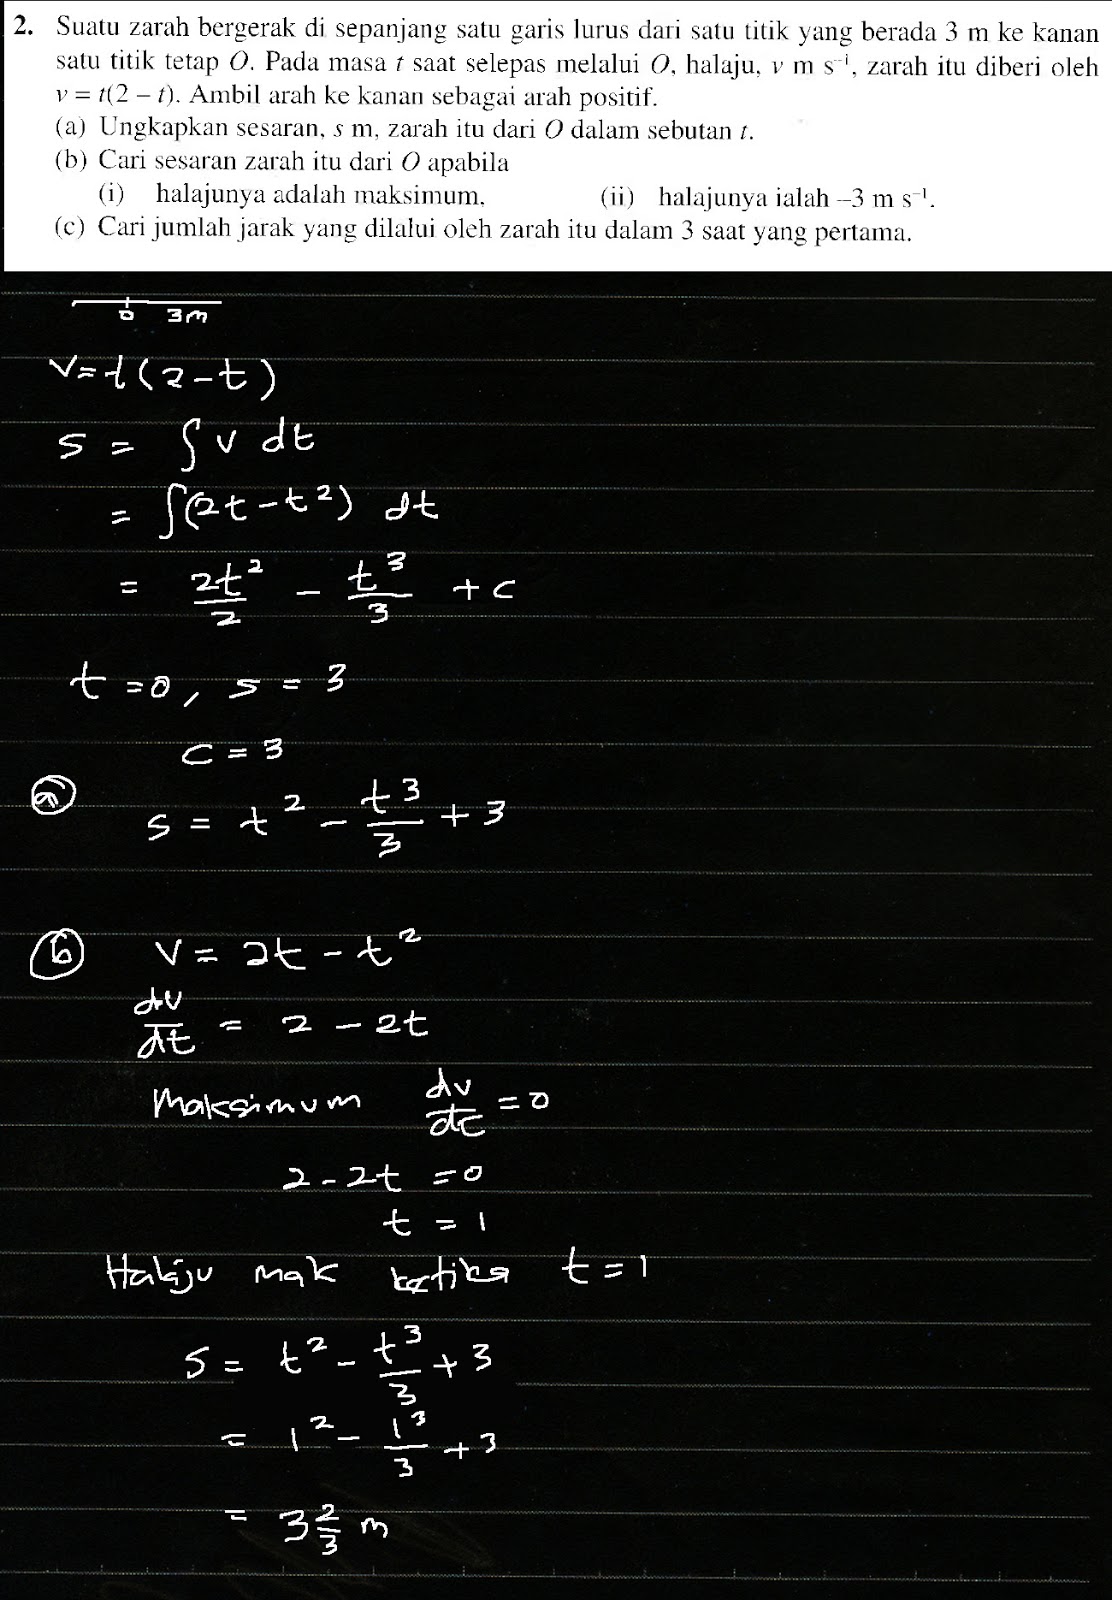 2. Suatu zarah bergerak di sepanjang satu garis lurus dari satu titik yang berada 3 m ke kanan
satu titik tetap O. Pada masa t saat selepas melalui O, halaju, v m s⁻¹, zarah itu diberi oleh
v = t(2 – t). Ambil arah ke kanan sebagai arah positif.
(a) Ungkapkan sesaran, s m, zarah itu dari O dalam sebutan t.
(b) Cari sesaran zarah itu dari O apabila
(i) halajunya adalah maksimum, (ii) halajunya ialah –3 m s⁻¹.
(c) Cari jumlah jarak yang dilalui oleh zarah itu dalam 3 saat yang pertama.
0 3m
v=t(2-t)
s = ∫ v dt
= ∫(2t-t²) dt
= 2t²/2 - t³/3 + c
t=0, s = 3
c = 3
(a) s = t² - t³/3 + 3
(b) v = 2t - t²
dv/dt = 2 - 2t
Maksimum dv/dt = 0
2-2t = 0
t = 1
Halaju mak ketika t=1
s = t² - t³/3 + 3
= 1² - 1³/3 + 3
= 3 2/3 m